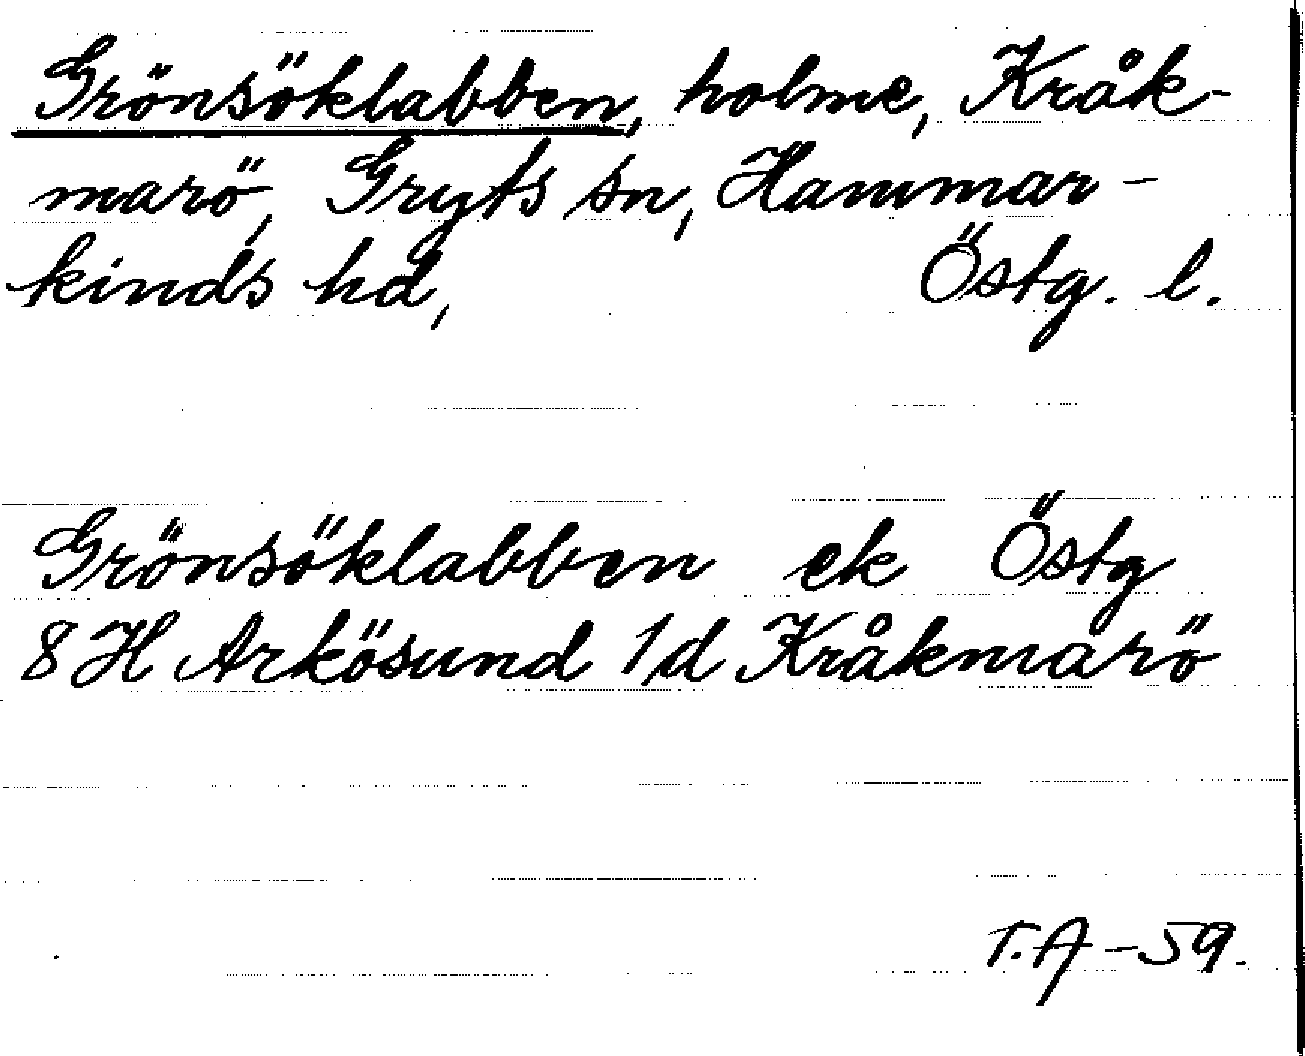 Grönsöklabben, holme, Kråk-
marö, Gryts sn, Hammar-
kinds hd, Östg. l.
Grönsöklabben ek Östg
8H Arkösund 1d Kråkmarö
T.A -59.